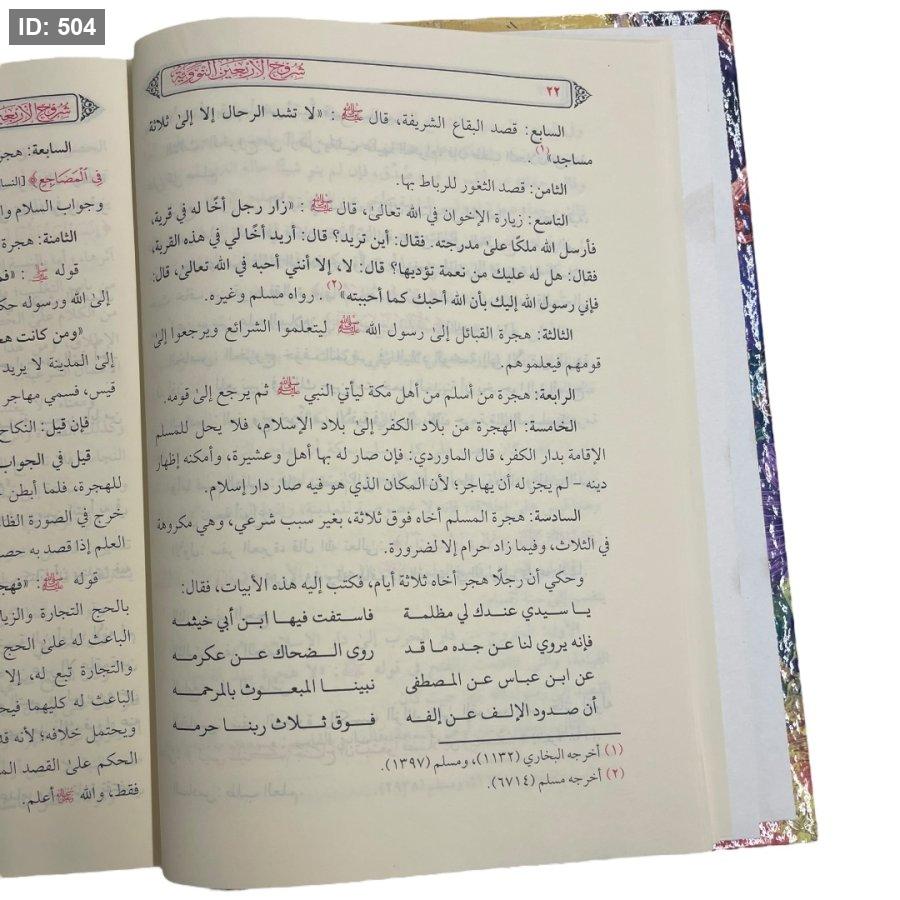 ID: 504
شروح الأربعين النووية
٢٢
السابع: قصد البقاع الشريفة، قال ﷺ: «لا تشد الرحال إلا إلىٰ ثلاثة
مساجد»(١).
الثامن: قصد الثغور للرباط بها.
التاسع: زيارة الإخوان في الله تعالىٰ، قال ﷺ: «زار رجل أخًا له في قرية،
فأرسل الله ملكًا علىٰ مدرجته: فقال: أين تريد؟ قال: أريد أخًا لي في هذه القرية،
فقال: هل له عليك من نعمة تؤديها؟ قال: لا، إلا أنني أحبه في الله تعالىٰ، قال:
فإني رسول الله إليك بأن الله أحبك كما أحببته»(٢). رواه مسلم وغيره.
الثالثة: هجرة القبائل إلىٰ رسول الله ﷺ ليتعلموا الشرائع ويرجعوا إلىٰ
قومهم فيعلموهم.
الرابعة: هجرة من أسلم من أهل مكة ليأتي النبي ﷺ ثم يرجع إلىٰ قومه.
الخامسة: الهجرة من بلاد الكفر إلىٰ بلاد الإسلام، فلا يحل للمسلم
الإقامة بدار الكفر، قال الماوردي: فإن صار له بها أهل وعشيرة، وأمكنه إظهار
دينه – لم يجز له أن يهاجر؛ لأن المكان الذي هو فيه صار دار إسلام.
السادسة: هجرة المسلم أخاه فوق ثلاثة، بغير سبب شرعي، وهي مكروهة
في الثلاث، وفيما زاد حرام إلا لضرورة.
وحكي أن رجلًا هجر أخاه ثلاثة أيام، فكتب إليه هذه الأبيات، فقال:
يا سيدي عندك لي مظلمة فاستفت فيها ابن أبي خيثمه
فإنه يروي لنا عن جده ما قد روى الضحاك عن عكرمه
عن ابن عباس عن المصطفى نبينا المبعوث بالمرحمه
أن صدود الإلف عن إلفه فوق ثلاث ربنا حرمه
(١) أخرجه البخاري (١١٣٢)، ومسلم (١٣٩٧).
(٢) أخرجه مسلم (٦٧١٤).
شروح الأربعين
السابعة: هجر
في المضاجع﴾ [النسا
وجواب السلام وا
الثامنة: هجرة
قوله ﷺ: «فم
إلىٰ الله ورسوله حك
«ومن كانت هج
إلىٰ المدينة لا يريد
قيس، فسمي مهاجر
فإن قيل: النكاح
قيل في الجواب
للهجرة، فلما أبطن
خرج في الصورة الظا
العلم إذا قصد به حص
قوله ﷺ: «فهج
بالحج التجارة والزيا
الباعث له علىٰ الحج
والتجارة تبع له، إلا
الباعث له كليهما فيح
ويحتمل خلافه؛ لأنه قد
الحكم علىٰ القصد الم
فقط، والله أعلم.